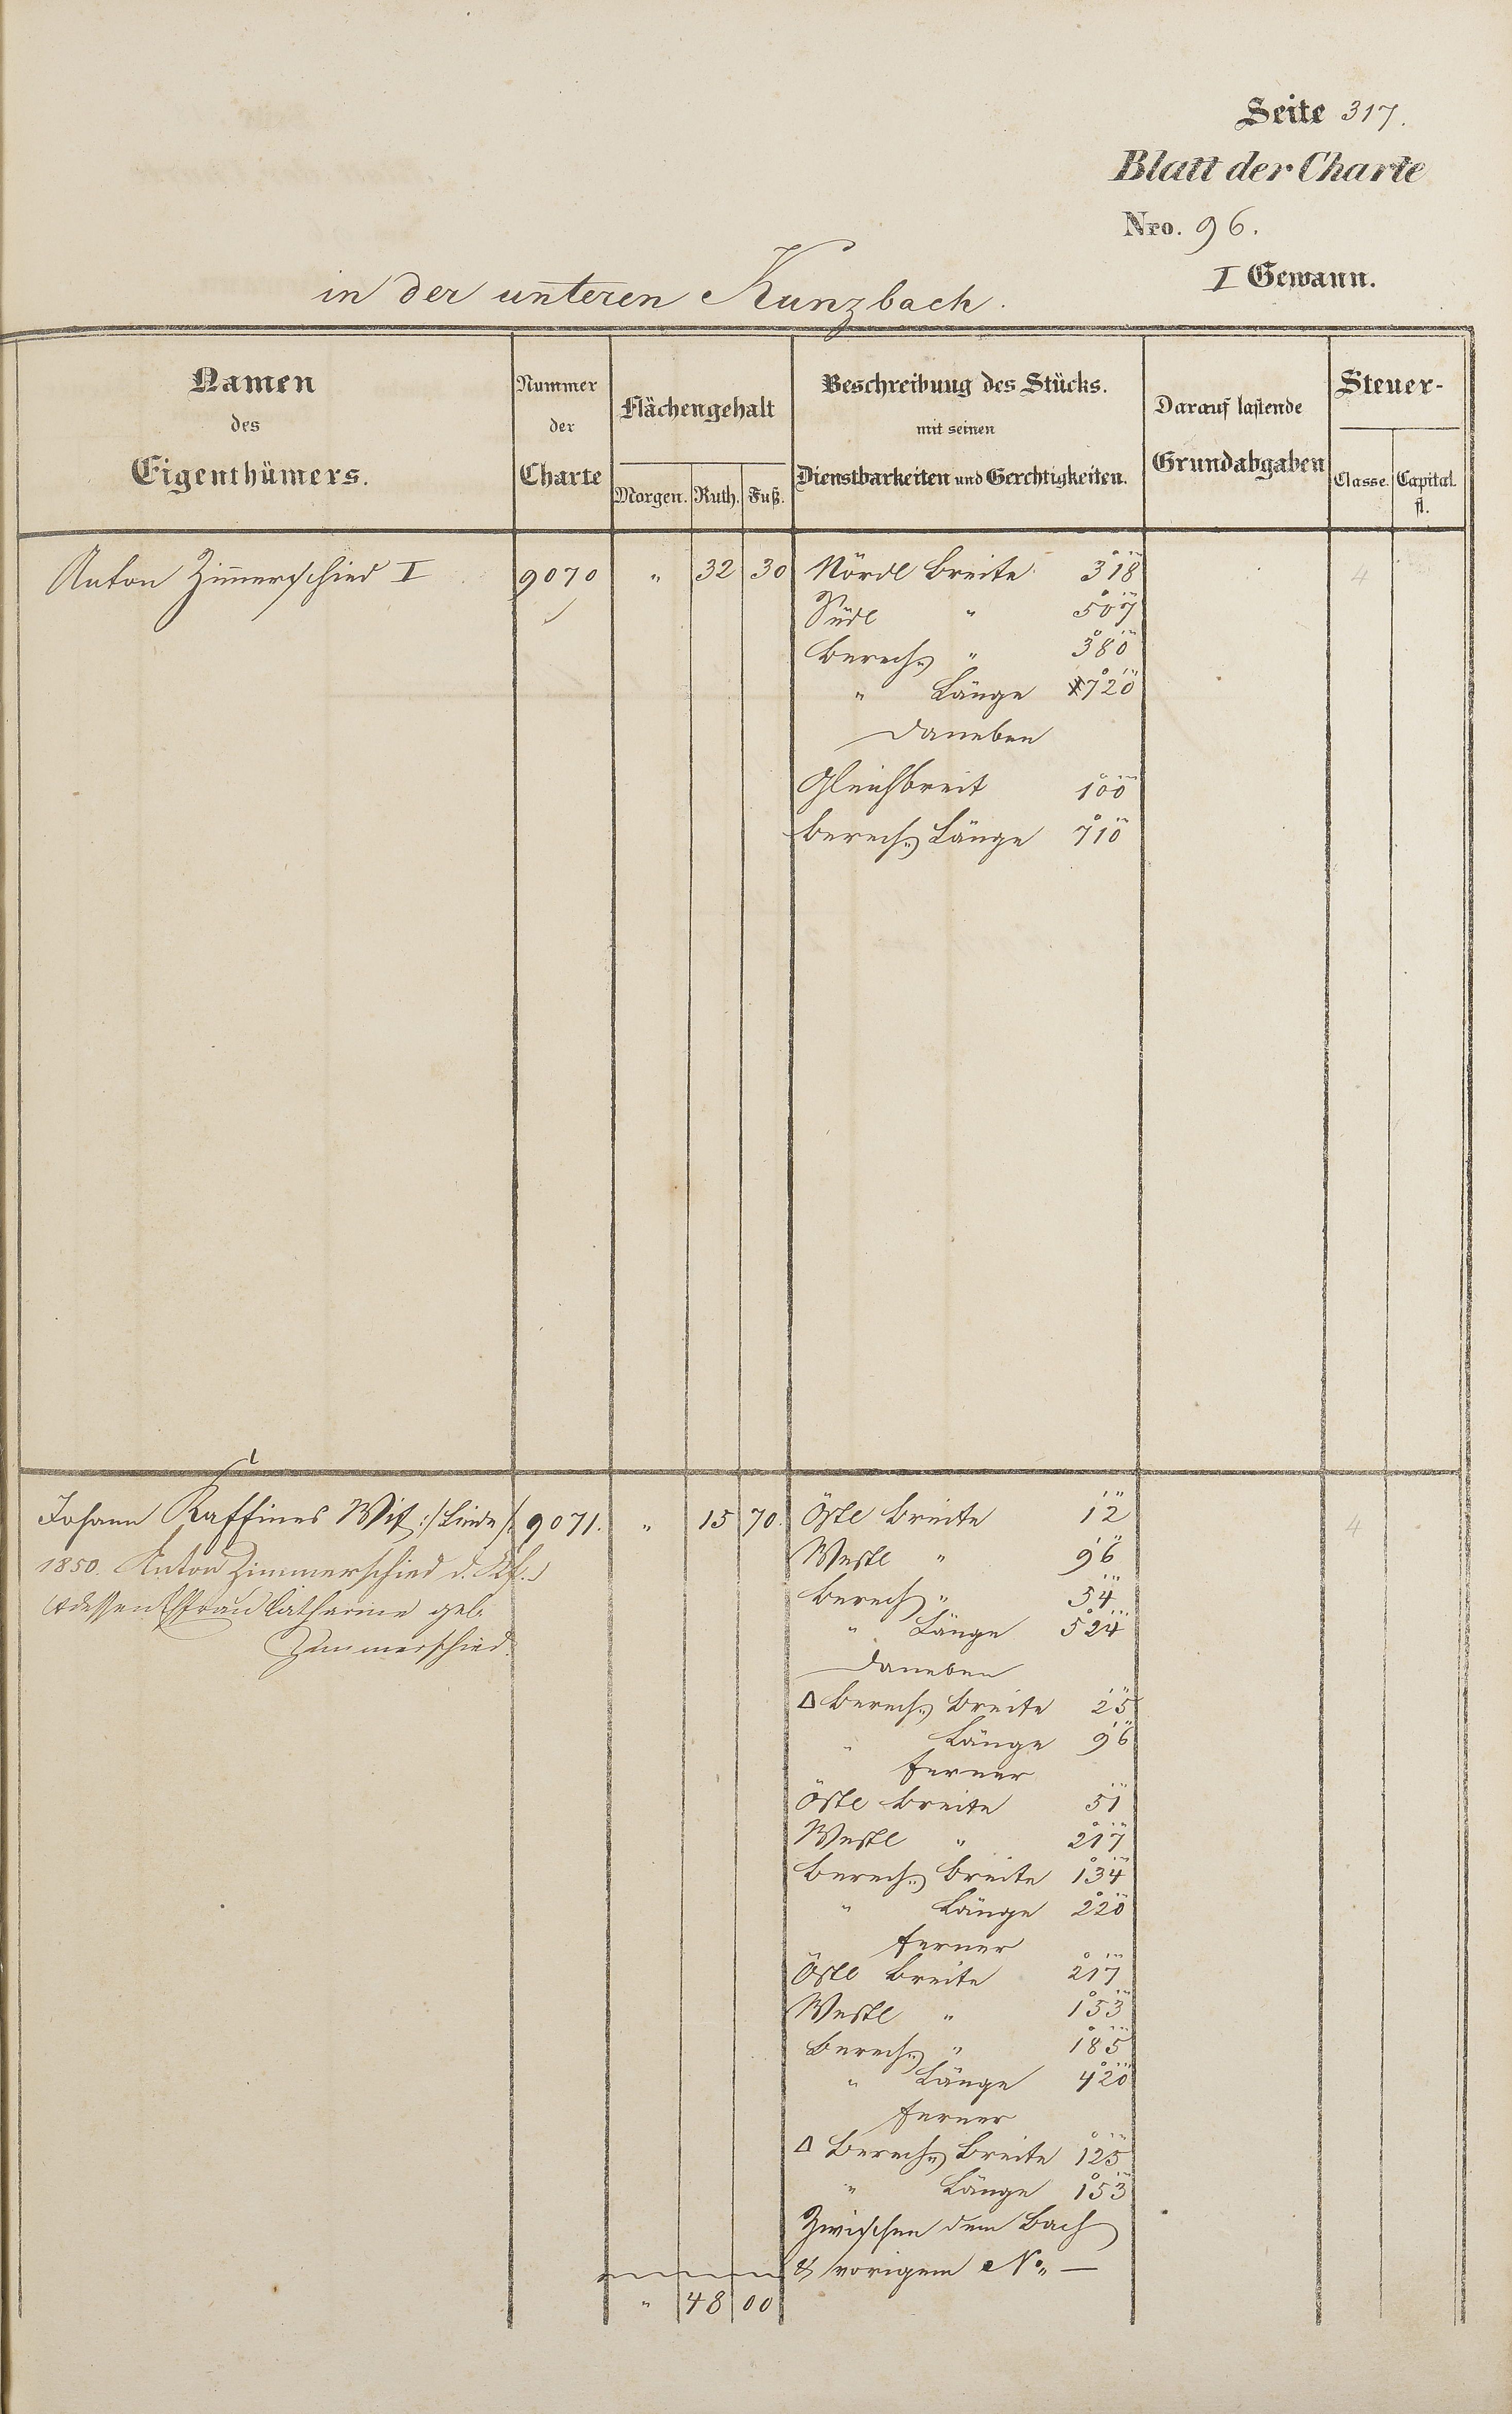 Seite 317.
Blatt der Charte
Nro. 96.
I Gewann.
in der unteren Kunzbach.
Namen
des
Eigenthümers.
Nummer
der
Charte
Flächengehalt
Morgen. Ruth. Fuß.
Beschreibung des Stücks.
mit seinen
Dienstbarkeiten und Gerechtigkeiten.
Darauf lastende
Grundabgaben
Steuer-
Classe. Capital.
fl.
Anton Zim̅erschied I 9070 " 32 30 Nördl Breite 318 4
Südl " 507
Berech. " 380
" Länge 720
Daneben
Gleichbreit 100
Berech. Länge 710
Johann Kaffines Wit :/Linde/: 9071. " 15 70. Östl Breite 12 4
1850. Anton Zimmerschied d.
dessen Ehfrau Catharine geb.
Zimmerschied.
Westl " 96
Berech " 54
" Länge 524
Daneben
Δ Berech. Breite 25
" Länge 96
ferner
Östl Breite 51
Westl " 217
Berech. Breite 134
" Länge 220
ferner
Östl Breite 217
Westl " 153
Berech. " 185
" Länge 420
ferner
Δ Berech. Breite 125
" Länge 153
Zwischen dem Bach
& vorigem No. —
" 48 00